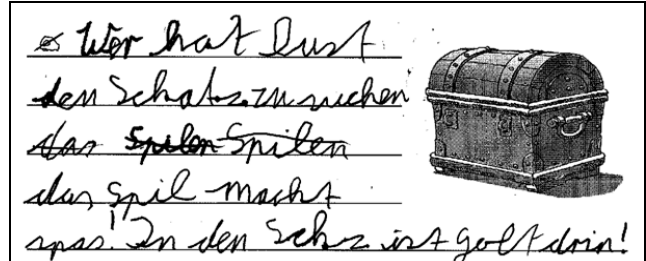 Wer hat lust
den Schatz zu suchen
das Spilen Spilen
das Spil macht
spas! In den Schz ist golt drin!